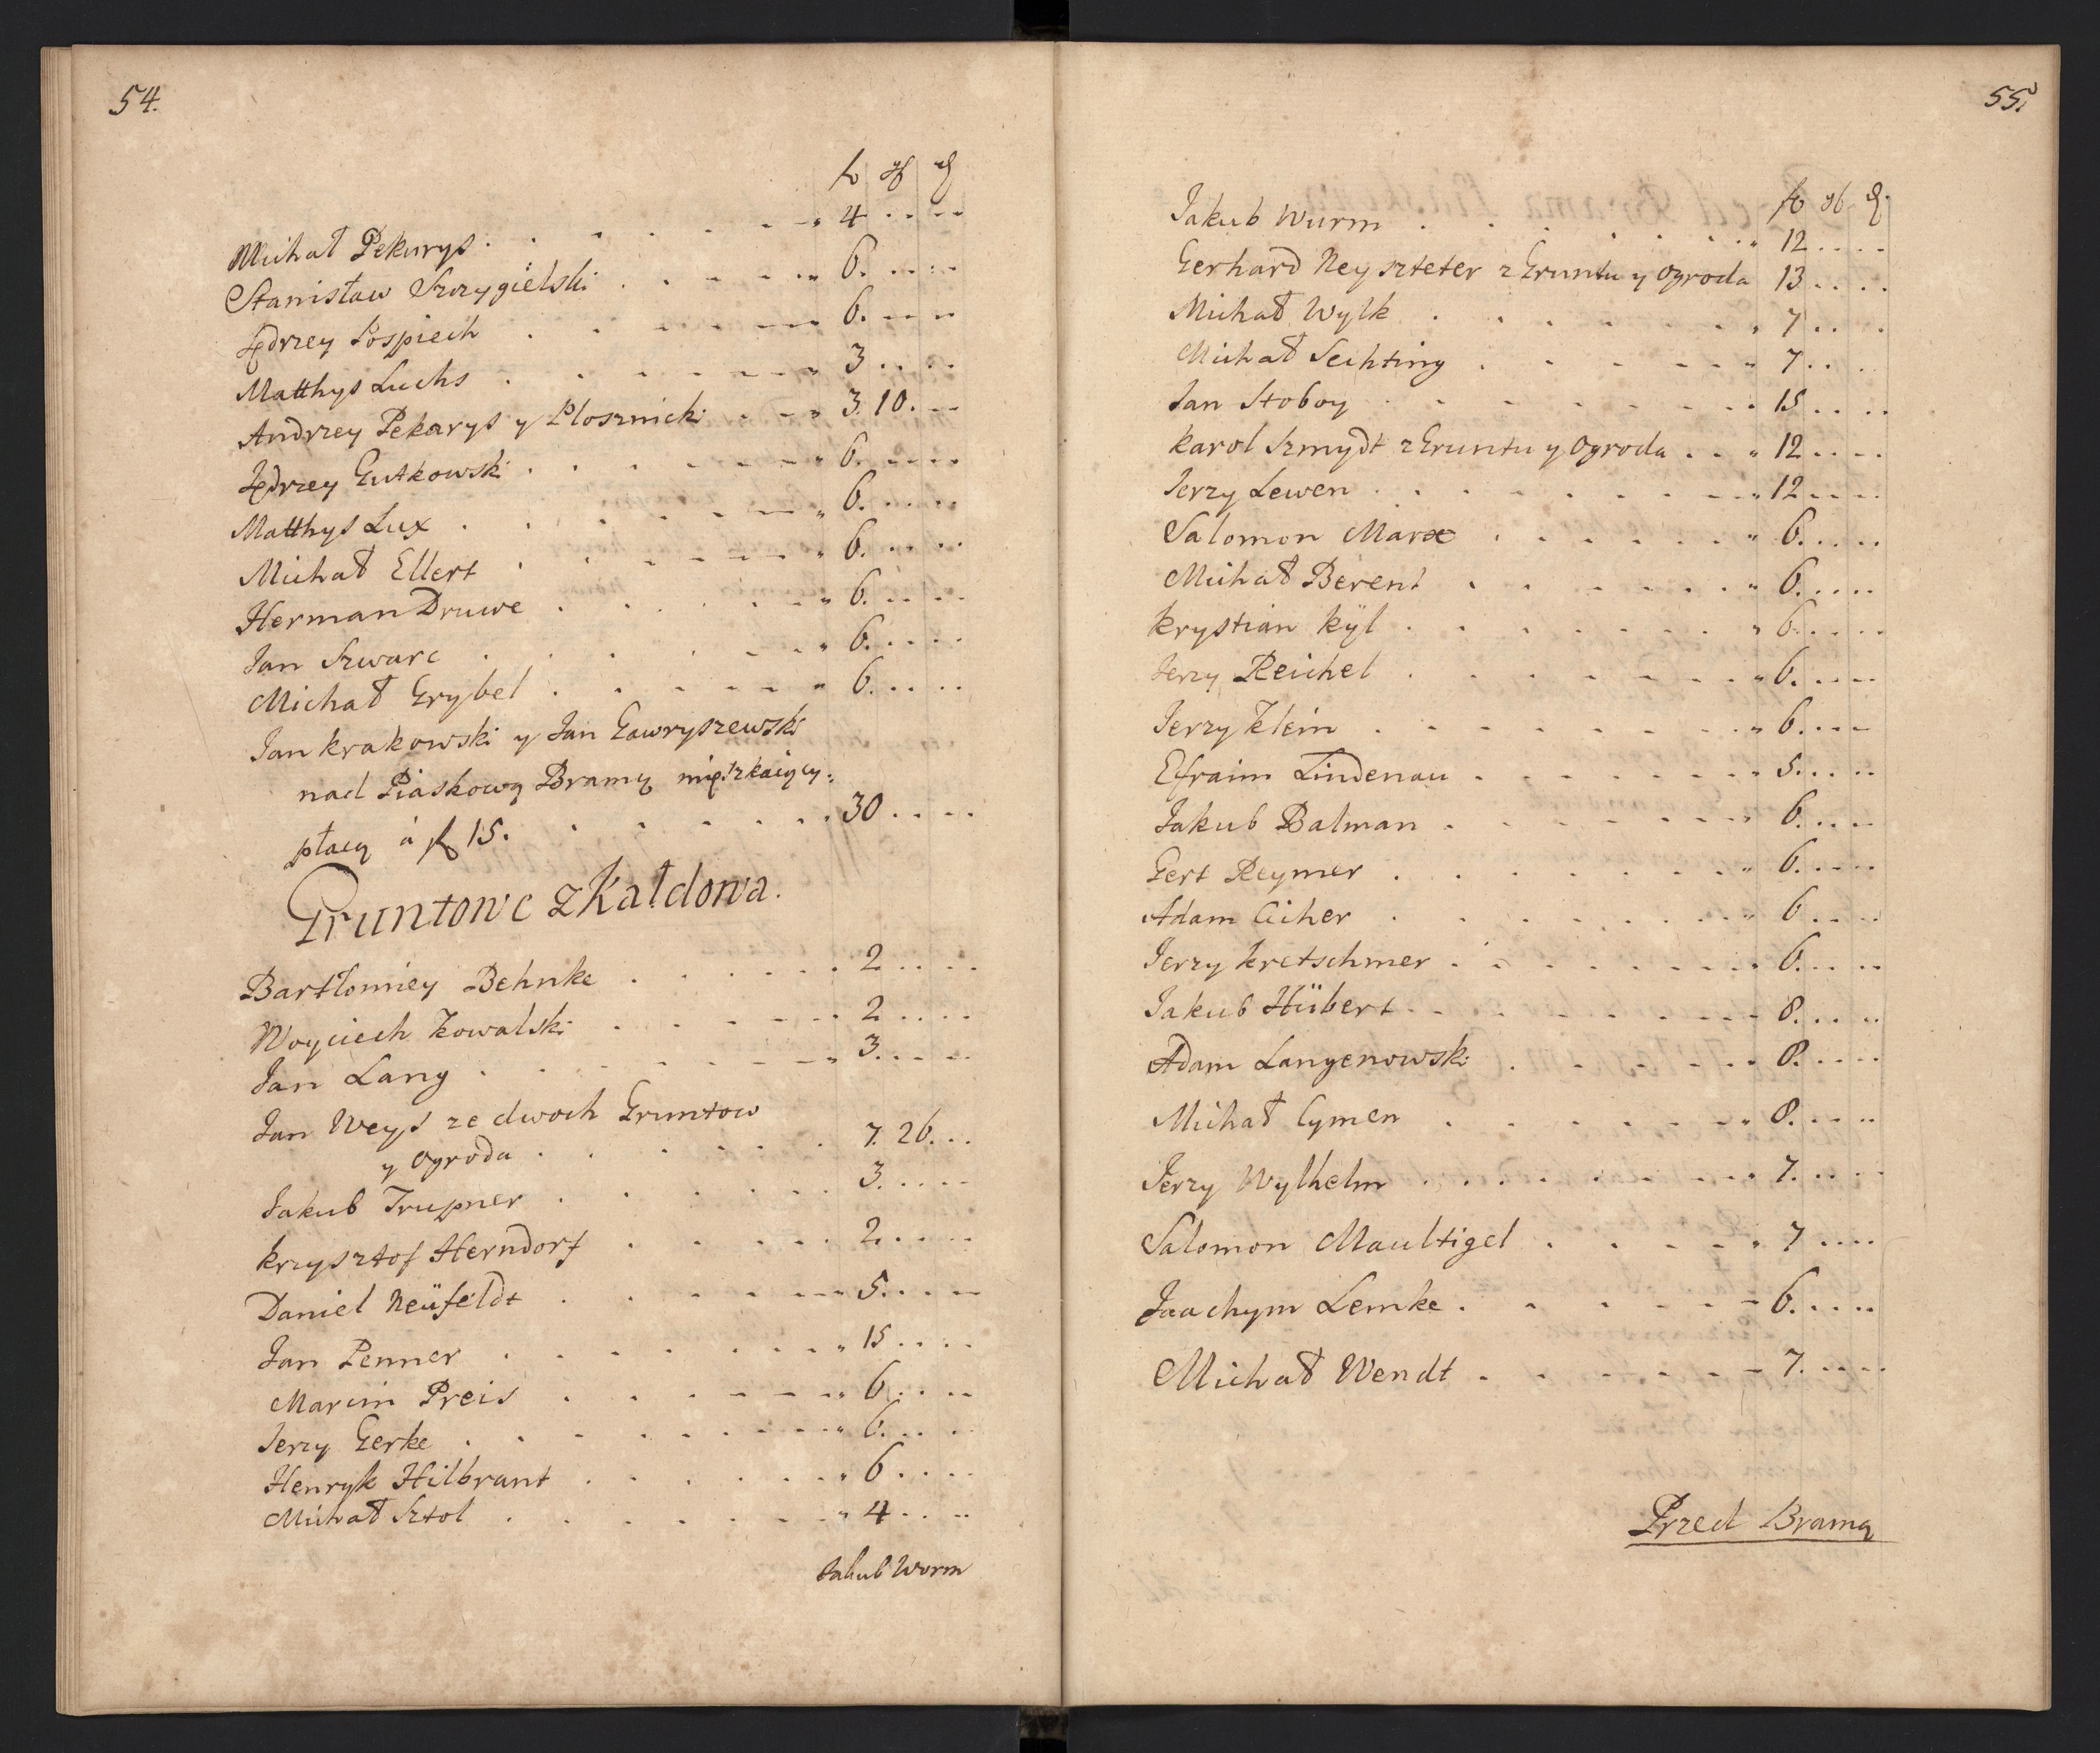 54.
fl gl ₰
Michał Pekurys . . . . . . 4 . . . .
Stanisław Szczygielski . . . . . . 6. . . . .
Jędrzey Pospiech . . . . . . 6. . . . .
Matthys Luchs . . . . . . 3 . . . .
Andrzey Pekarys y Plosznicki . . . 3. 10. . .
Jędrzey Gutkowski . . . . . . 6. . . . .
Matthys Lux . . . . . . 6. . . . .
Michał Ellert . . . . . . 6. . . . .
Herman Druwe . . . . . . 6. . . . .
Jan Szwarc . . . . . . 6. . . . .
Michał Grybel . . . . . . 6. . . . .
Jan Krakowski y Jan Gawryszewski
nad Piaskową Bramą mięszkaiący:
płacą á fl 15. . . . . . . 30 . . . .
Gruntowe z Kałdowa.
Bartłomiey Behnke . . . . . . 2 . . . .
Woyciech Kowalski . . . . . . 2 . . . .
Jan Lang . . . . . . 3. . . . .
Jan Weys ze dwoch Gruntow
y Ogroda . . . . . . 7. 26. . .
Jakub Trupner . . . . . . 3. . . . .
Krzysztof Herndorf . . . . . . 2. . . . .
Daniel Neüfeldt . . . . . . 5. . . . .
Jan Penner . . . . . . 15 . . . .
Marcin Preis . . . . . . 6 . . . .
Jerzy Gerke . . . . . . 6. . . . .
Henryk Hilbrant . . . . . . 6 . . . .
Michał Sztol . . . . . . 4 . . . .
Jakub Worm
55.
fl gl ₰
Jakub Wurm . . . . . . 12 . . . .
Gerhard Neyszteter z Gruntu y Ogroda 13 . . . .
Michał Wylk . . . . . . 7 . . .
Michał Sechting . . . . . . 7 . . . .
Jan Stoboy . . . . . . 15 . . . .
Karol Szmydt z Gruntu y Ogroda . . 12 . . . .
Jerzy Lewen . . . . . . 12 . . . .
Salomon Marx . . . . . . 6. . . . .
Michał Berent . . . . . . 6. . . . .
Krystian Kÿl . . . . . . 6. . . . .
Jerzy Reichel . . . . . . 6. . . . .
Jerzy Klein . . . . . . 6. . . .
Efraim Lindenau . . . . . . 5. . . . .
Jakub Balman . . . . . . 6. . . .
Gert Reymer . . . . . . 6. . . . .
Adam Ciher . . . . . . 6 . . . .
Jerzy Kretschmer . . . . . . 6. . . . .
Jakub Hübert . . . . . . 8. . . . .
Adam Langenowski . . . . . . 8. . . . .
Michał Cymen . . . . . . 8. . . . .
Jerzy Wylhelm . . . . . . 7. . . . .
Salomon Maultigel . . . . . . 7 . . . .
Joachym Lemke . . . . . . 6. . . . .
Michał Wendt . . . . . . 7. . . . .
Przed Bramą